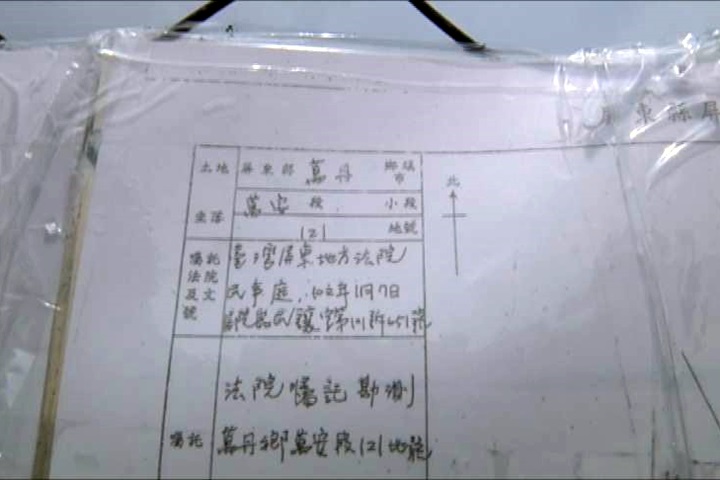 屏東縣屏
土地 屏東郡 萬丹 鄉鎮市
坐落 萬安 段 小段
121 地號
北
囑託法院及文號
臺灣屏東地方法院
民事庭,102年1月7日
法院囑託勘測
囑託 萬丹鄉萬安段121地號